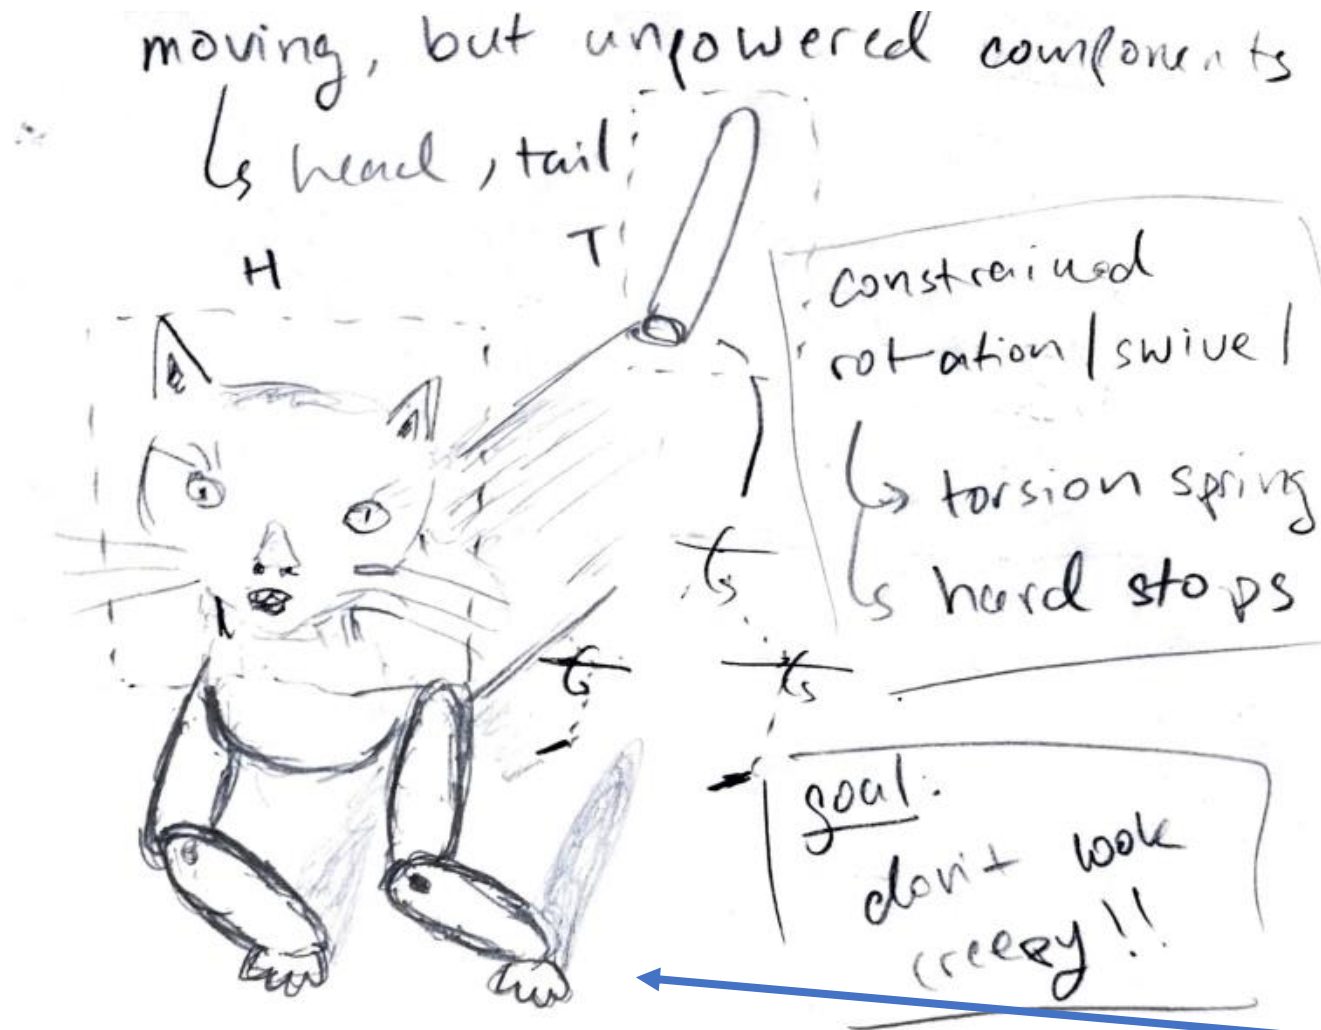 moving, but unpowered components
↳ head, tail
H
T
constrained
rotation / swivel
↳ torsion spring
↳ hard stops
goal:
don't look
creepy!!